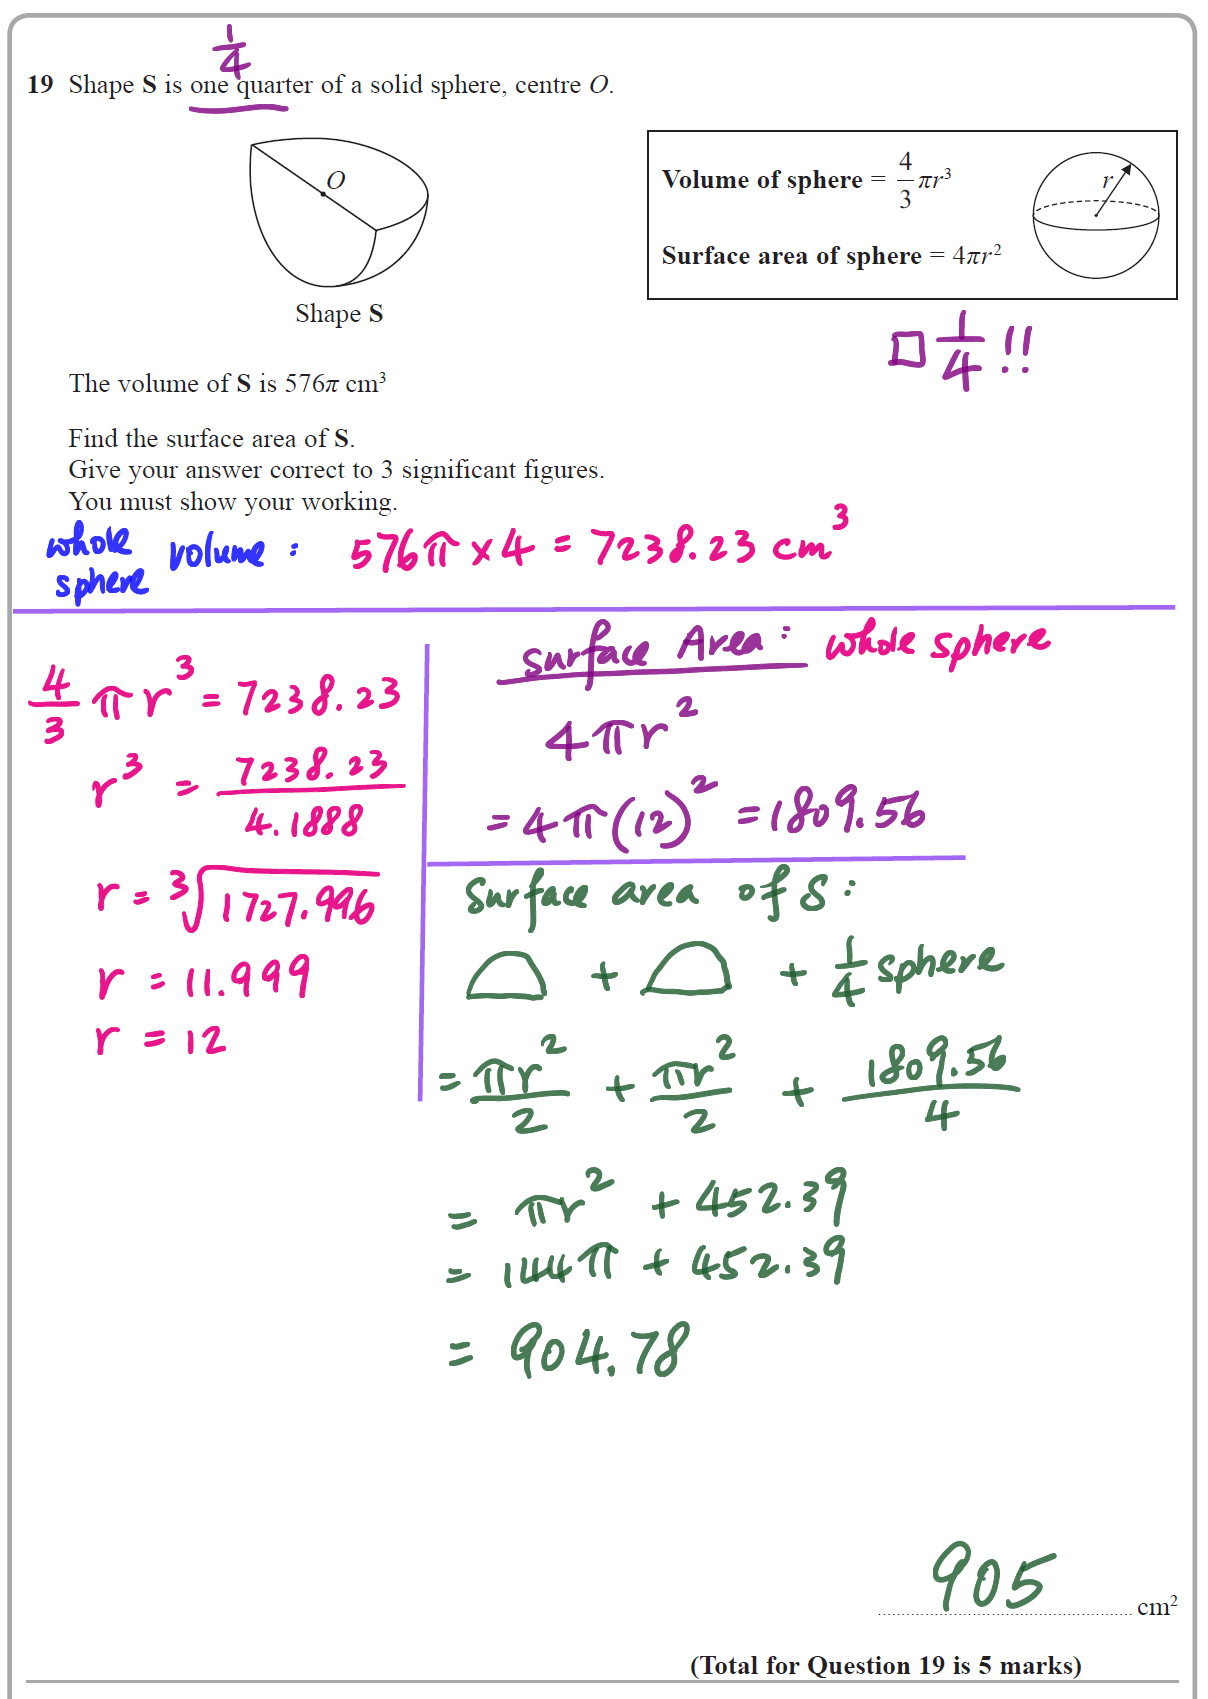 1/4
19 Shape S is one quarter of a solid sphere, centre O.
O
Shape S
Volume of sphere = 4/3 πr³
Surface area of sphere = 4πr²
r
□ 1/4 !!
The volume of S is 576π cm³
Find the surface area of S.
Give your answer correct to 3 significant figures.
You must show your working.
whole sphere volume : 576π × 4 = 7238.23 cm³
4/3 πr³ = 7238.23
r³ = 7238.23/4.1888
r = ³√1727.996
r = 11.999
r = 12
Surface Area : whole sphere
4πr²
= 4π(12)² = 1809.56
Surface area of S :
+ + 1/4 sphere
= πr²/2 + πr²/2 + 1809.56/4
= πr² + 452.39
= 144π + 452.39
= 904.78
905 cm²
(Total for Question 19 is 5 marks)